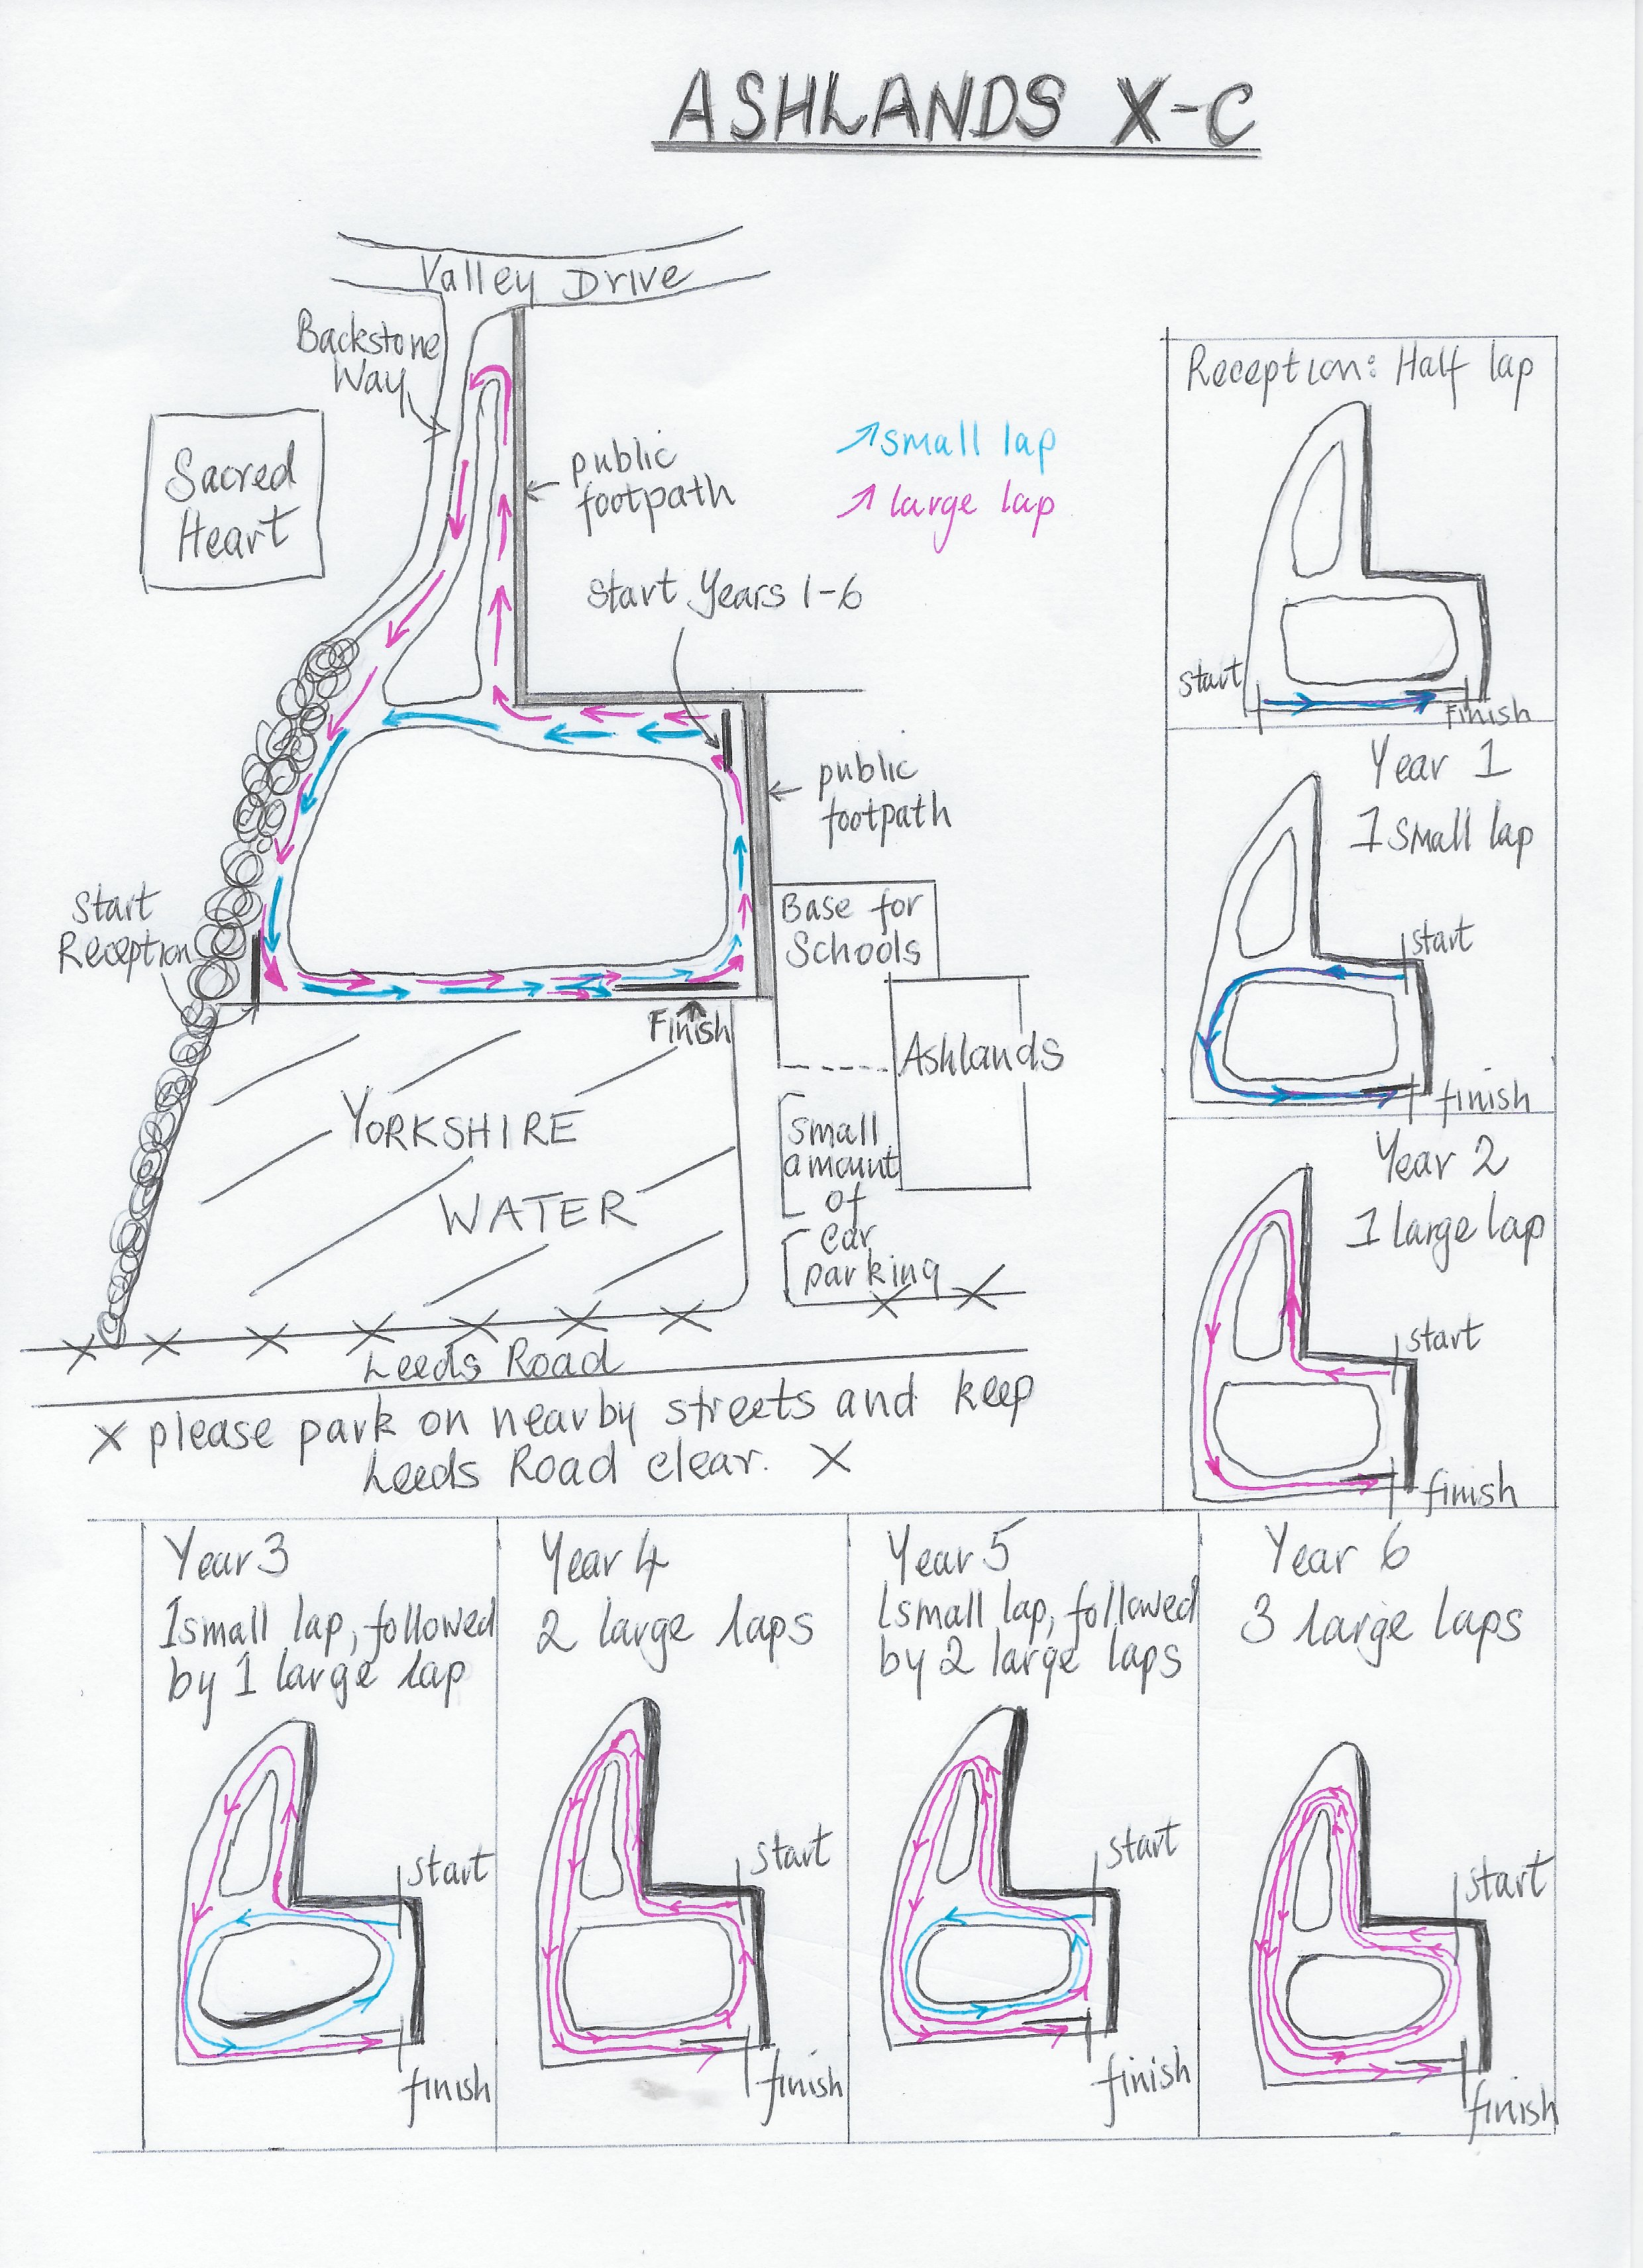 ASHLANDS X-C
Valley Drive
Backstone
Way
Sacred
Heart
public
footpath
small lap
large lap
Start Years 1-6
public
footpath
Start
Reception
Base for
Schools
Finish
Ashlands
YORKSHIRE
WATER
Small
amount
of
car
parking
Leeds Road
X please park on nearby streets and keep
Leeds Road clear. X
Reception: Half lap
start
Finish
Year 1
1 small lap
start
finish
Year 2
1 large lap
start
finish
Year 3
1 small lap, followed
by 1 large lap
start
finish
Year 4
2 large laps
start
finish
Year 5
1 small lap, followed
by 2 large laps
start
finish
Year 6
3 large laps
start
finish